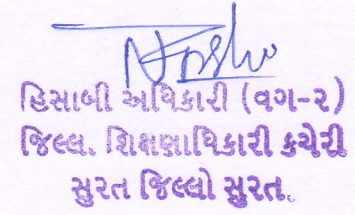 હિસાબી અધિકારી (વગ-૨)
જિલ્લ. શિક્ષણાધિકારી કચેરી
સુરત જિલ્લો સુરત.